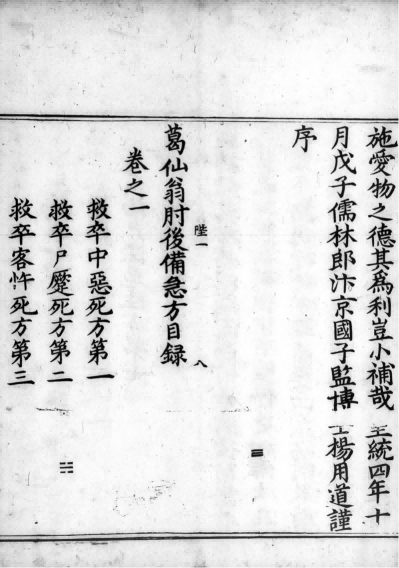 施愛物之德其爲利豈小補哉皇統四年十
月戊子儒林郎汴京國子監博士揚用道謹
序
陛一
八
葛仙翁肘後備急方目録
卷之一
救卒中惡死方第一
救卒尸蹷死方第二
救卒客忤死方第三